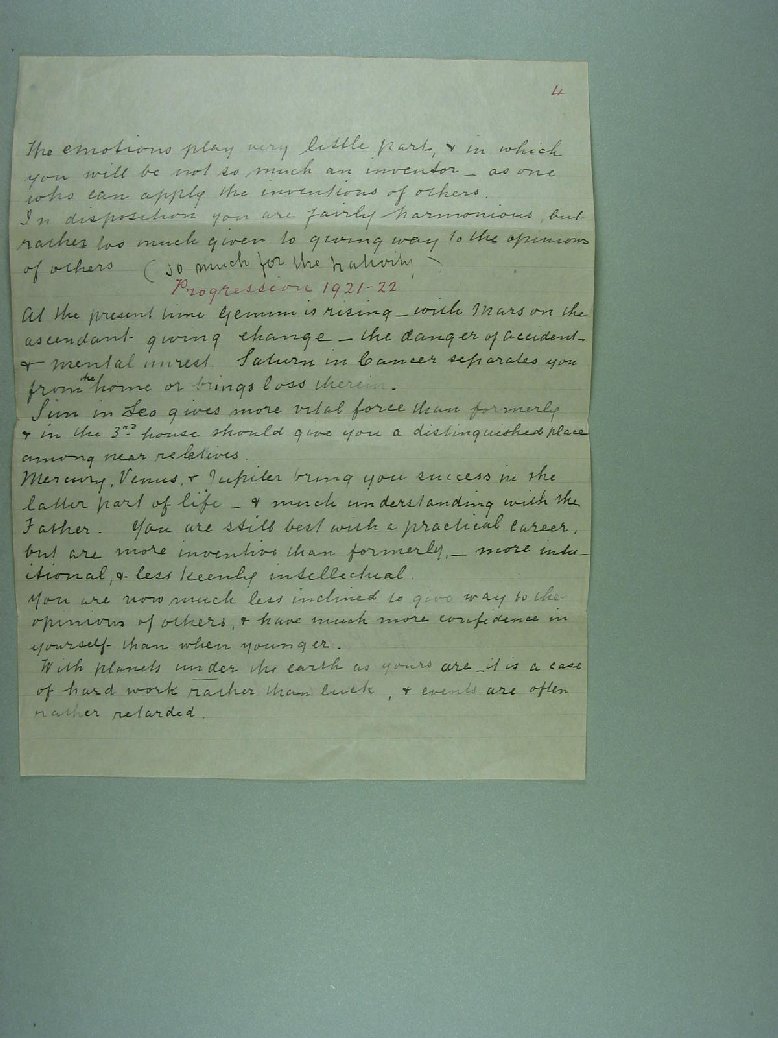 4
The emotions play very little part, & in which
you will be not so much an inventor – as one
who can apply the inventions of others.
In disposition you are fairly harmonious, but
rather too much given to giving way to the opinions
of others (so much for the nativity)
Progression 1921-22
At the present time Gemini is rising – with Mars on the
ascendant giving change – the danger of accident –
& mental unrest. Saturn in Cancer separates you
from the home or brings loss therein.
Sun in Leo gives more vital force than formerly
& in the 3rd house should give you a distinguished place
among near relatives.
Mercury, Venus, & Jupiter bring you success in the
latter part of life – & much understanding with the
Father. You are still best with a practical career,
but are more inventive than formerly, – more intu-
itional, & less keenly intellectual.
You are now much less inclined to give way to the
opinions of others, & have much more confidence in
yourself than when younger.
With planets under the earth as yours are it is a case
of hard work rather than luck, & events are often
rather retarded.